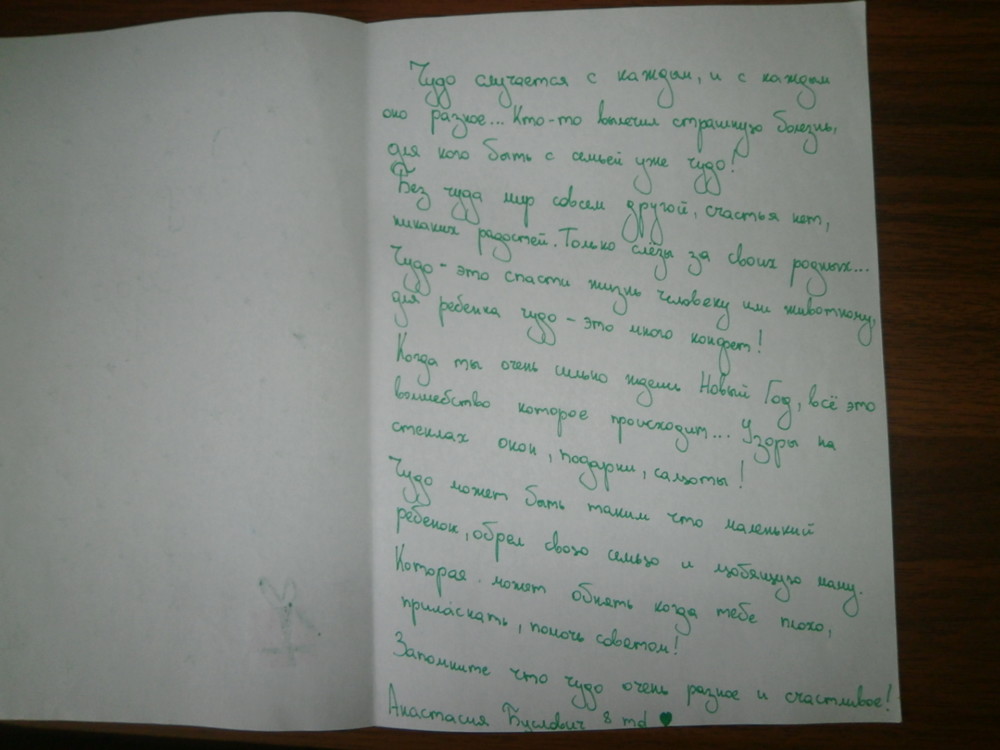 Чудо случается с каждым, и с каждым
оно разное... Кто-то вылечил страшную болезнь,
для кого быть с семьей уже чудо!
Без чуда мир совсем другой, счастья нет,
никаких радостей. Только слёзы за своих родных...
Чудо - это спасти жизнь человеку или животному,
для ребенка чудо - это много конфет!
Когда ты очень сильно ждешь Новый Год, всё это
волшебство которое происходит... Узоры на
стеклах окон, подарки, салюты!
Чудо может быть таким что маленький
ребенок, обрел свою семью и любящую маму.
Которая может обнять когда тебе плохо,
приласкать, помочь советом!
Запомните что чудо очень разное и счастливое!
Анастасия Буслович 8 md ♥